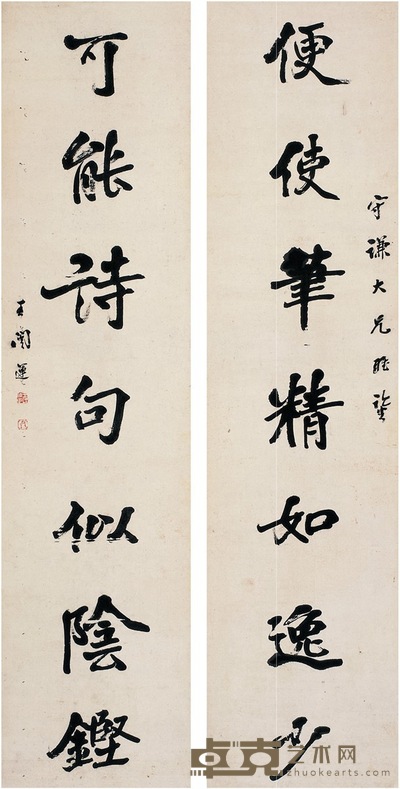 守謙大兄雅鑒
便使筆精如逸少
可能詩句似陰鏗
王闓運
卓克艺术网
zhuokearts.com